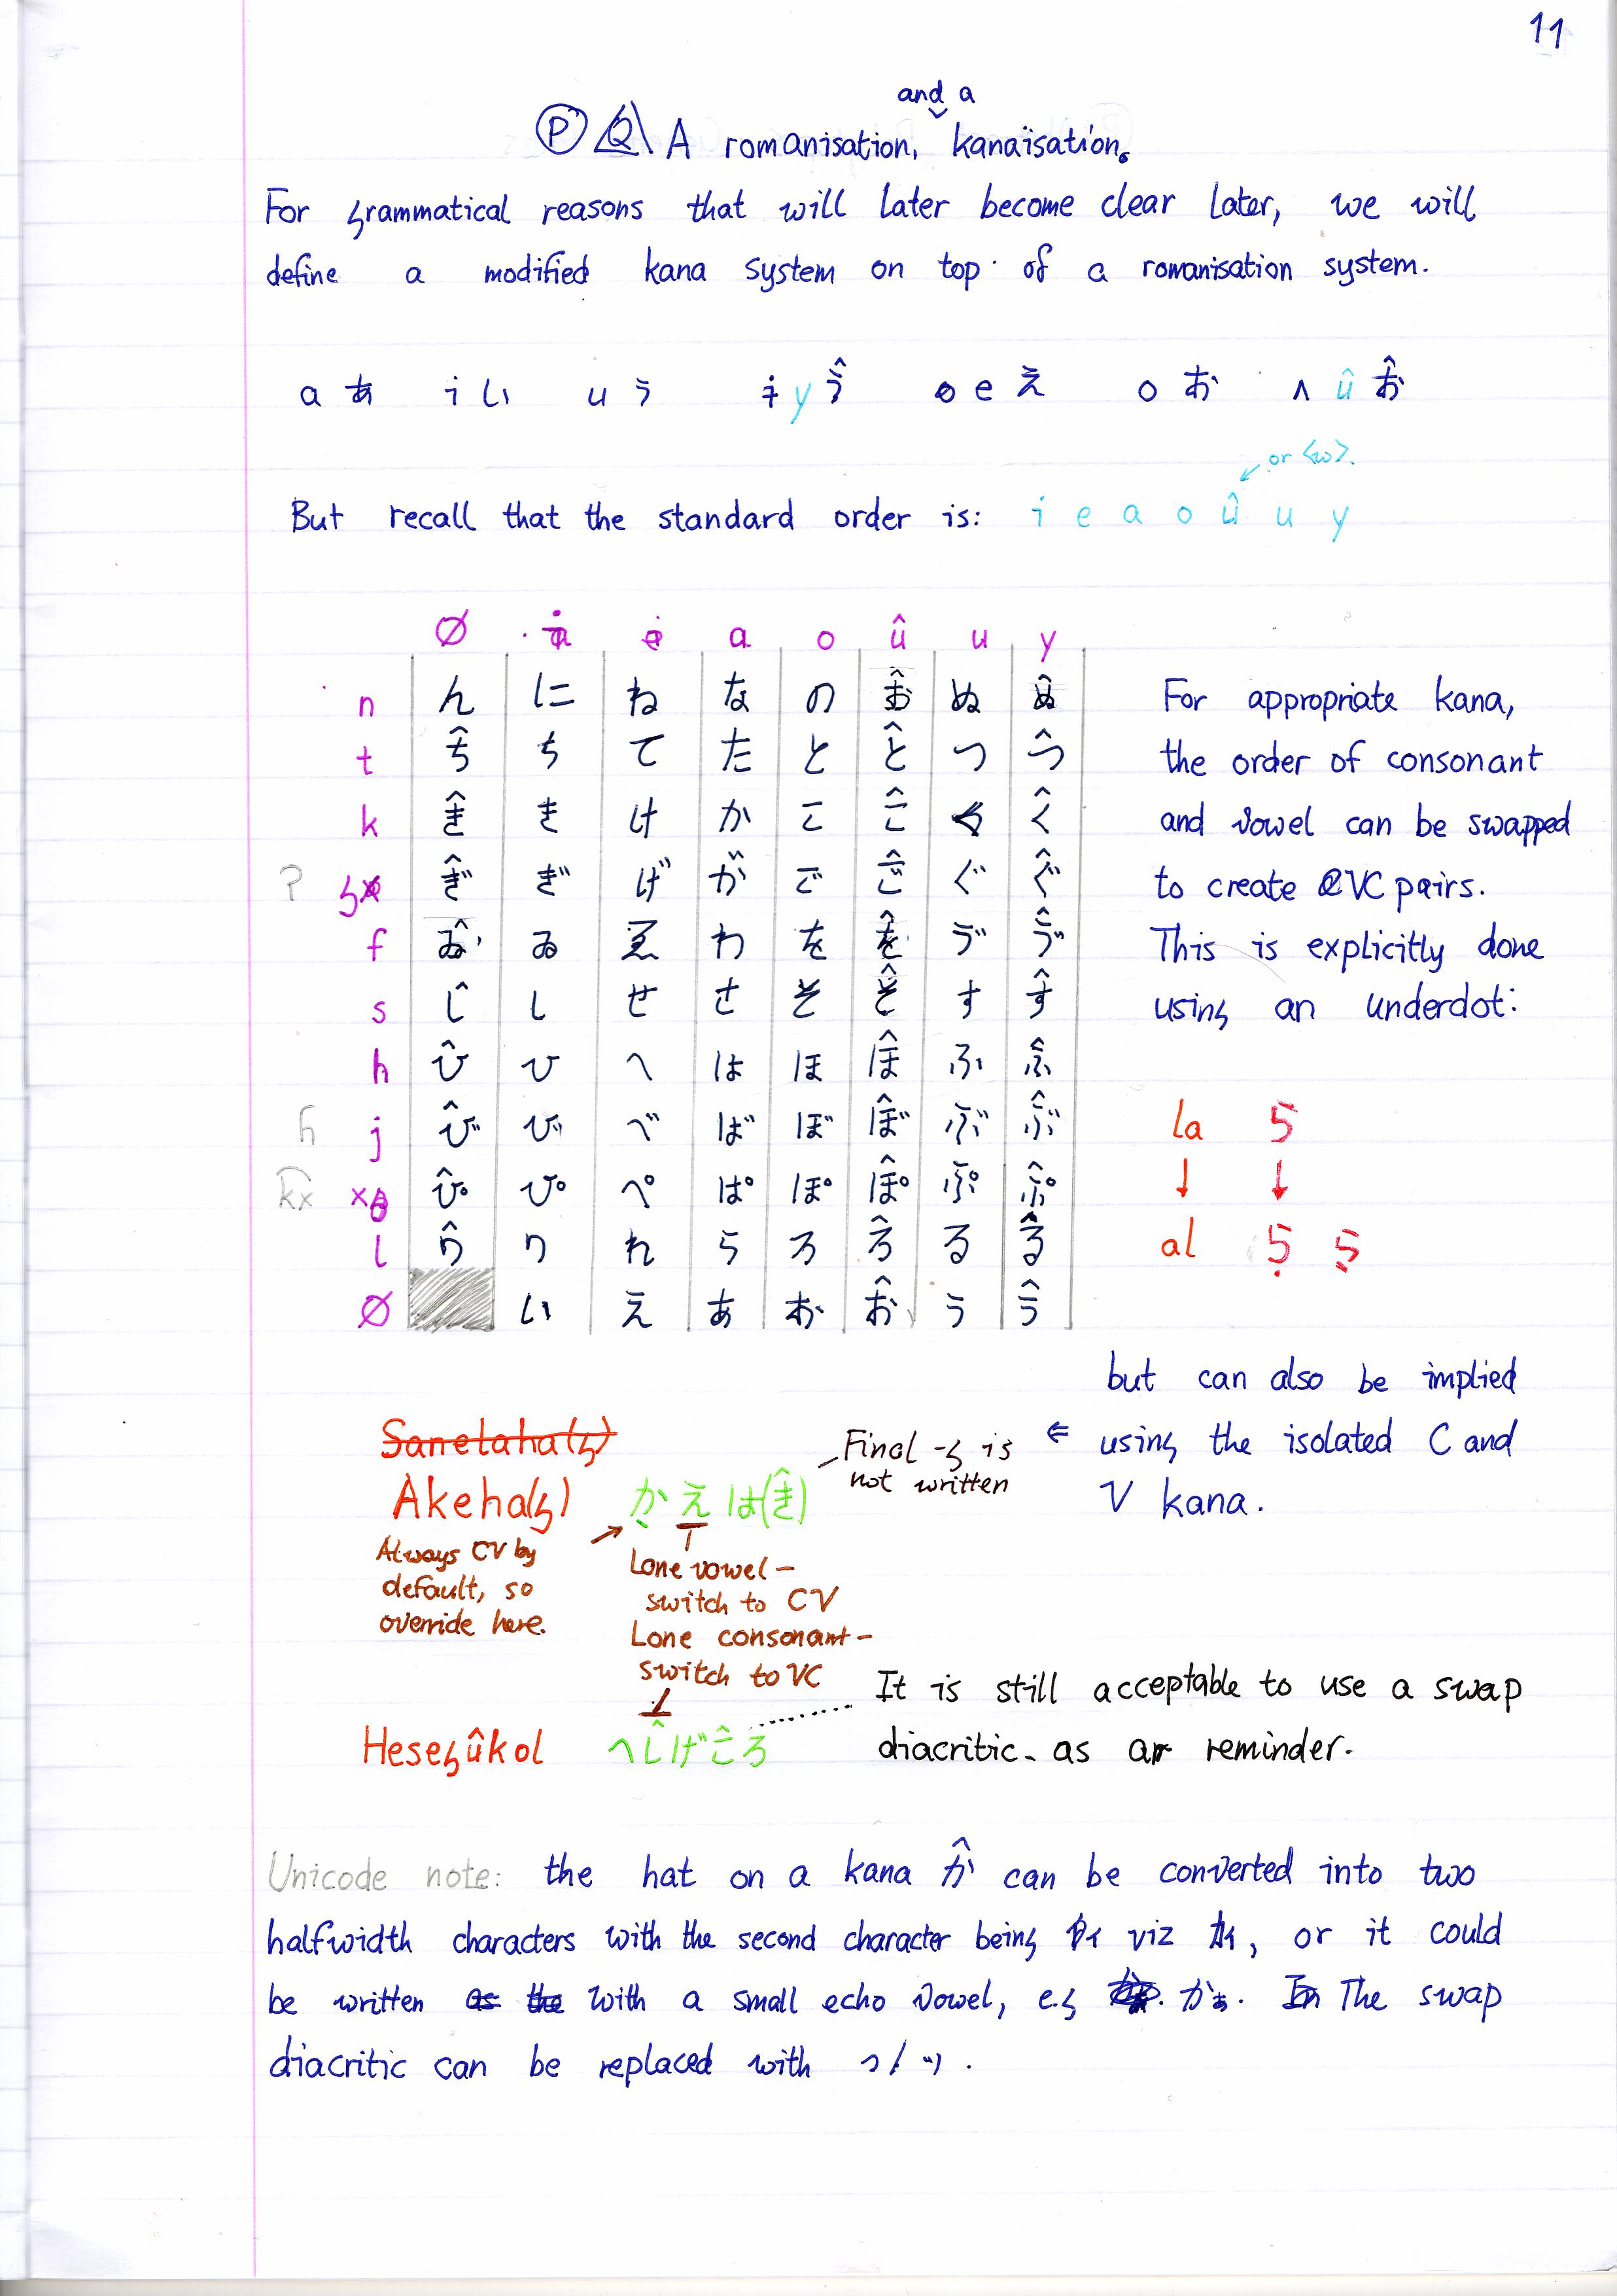 11
and a
P Q A romanisation, kanaïsation.
For grammatical reasons that will later become clear later, we will
define a modified kana system on top of a romanisation system.
a あ i い u う ɨ y う̂ e え o お ʌ û お̂
or <w>.
But recall that the standard order is: i e a o û u y
∅ i e a o û u y
n ん に ね な の お̂ ぬ ぬ̂
t ち̂ ち て た と と̂ つ つ̂
k き̂ き け か こ こ̂ く く̂
? g ぎ̂ ぎ げ が ご ご̂ ぐ ぐ̂
f ゐ̂ ゐ ゑ わ を を̂ ゔ ゔ̂
s し̂ し せ さ そ そ̂ す す̂
h ひ̂ ひ へ は ほ ほ̂ ふ ふ̂
ɦ j び̂ び べ ば ぼ ぼ̂ ぶ ぶ̂
kx x ぴ̂ ぴ ぺ ぱ ぽ ぽ̂ ぷ ぷ̂
l り̂ り れ ら ろ ろ̂ る る̂
∅ い え あ お お̂ う う̂
For appropriate kana,
the order of consonant
and vowel can be swapped
to create VC pairs.
This is explicitly done
using an underdot:
la ら
↓ ↓
al ら̣ ら̤
but can also be implied
⇐ using the isolated C and
V kana.
Sanelaha(g)
Akeha(g) か̣えは(き̂)
Final -g is
not written
Always CV by
default, so
override here.
Lone vowel –
switch to CV
Lone consonant –
switch to VC
Hesegûkol へし̂げこ̂ろ
It is still acceptable to use a swap
diacritic as a reminder.
Unicode note: the hat on a kana か̂ can be converted into two
halfwidth characters with the second character being ｲ viz ｶｲ, or it could
be written as the with a small echo vowel, e.g かぁ. In The swap
diacritic can be replaced with っ/ッ.